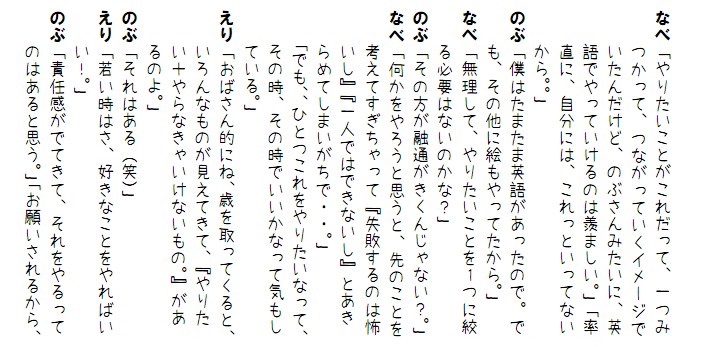 なべ「やりたいことがこれだって、一つみ
つかって、つながっていくイメージで
いたんだけど、のぶさんみたいに、英
語でやっていけるのは羨ましい。」「率
直に、自分には、これっといってない
から。。」
のぶ「僕はたまたま英語があったので。で
も、その他に絵もやってたから。」
なべ「無理して、やりたいことを1つに絞
る必要はないのかな?」
のぶ「その方が融通がきくんじゃない?。」
なべ「何かをやろうと思うと、先のことを
考えてすぎちゃって『失敗するのは怖
いし』『一人ではできないし』とあき
らめてしまいがちで・・。」
「でも、、ひとつこれをやりたいなって、
その時、その時でいいかなって気もし
ている。」
えり「おばさん的にね、歳を取ってくると、
いろんなものが見えてきて、『やりた
い+やらなきゃいけないもの。』があ
るのよ。」
のぶ「それはある(笑)」
えり「若い時はさ、好きなことをやればい
い!。」
のぶ「責任感がでてきて、それをやるって
のはあると思う。」「お願いされるから、